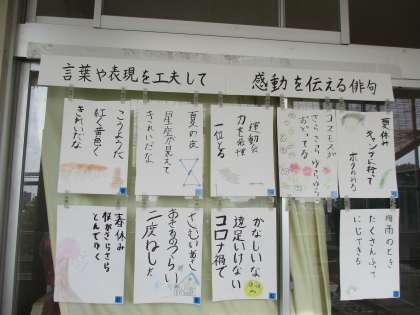 言葉や表現を工夫して 感動を伝える俳句
夏休み
キャンプに行って
コスモスが
さらさらゆらゆら
おどってる
運動会
力を発揮
一位とる
夏の夜
星座が見えて
きれいだな
こうようだ
紅く黄色く
きれいだな
梅雨のとき
たくさんふって
にじできる
かなしいな
遠足いけない
コロナ禍で
さむいあさ
おきるのつらい
二度ねした
春休み
桜がさらさら
とんでゆく